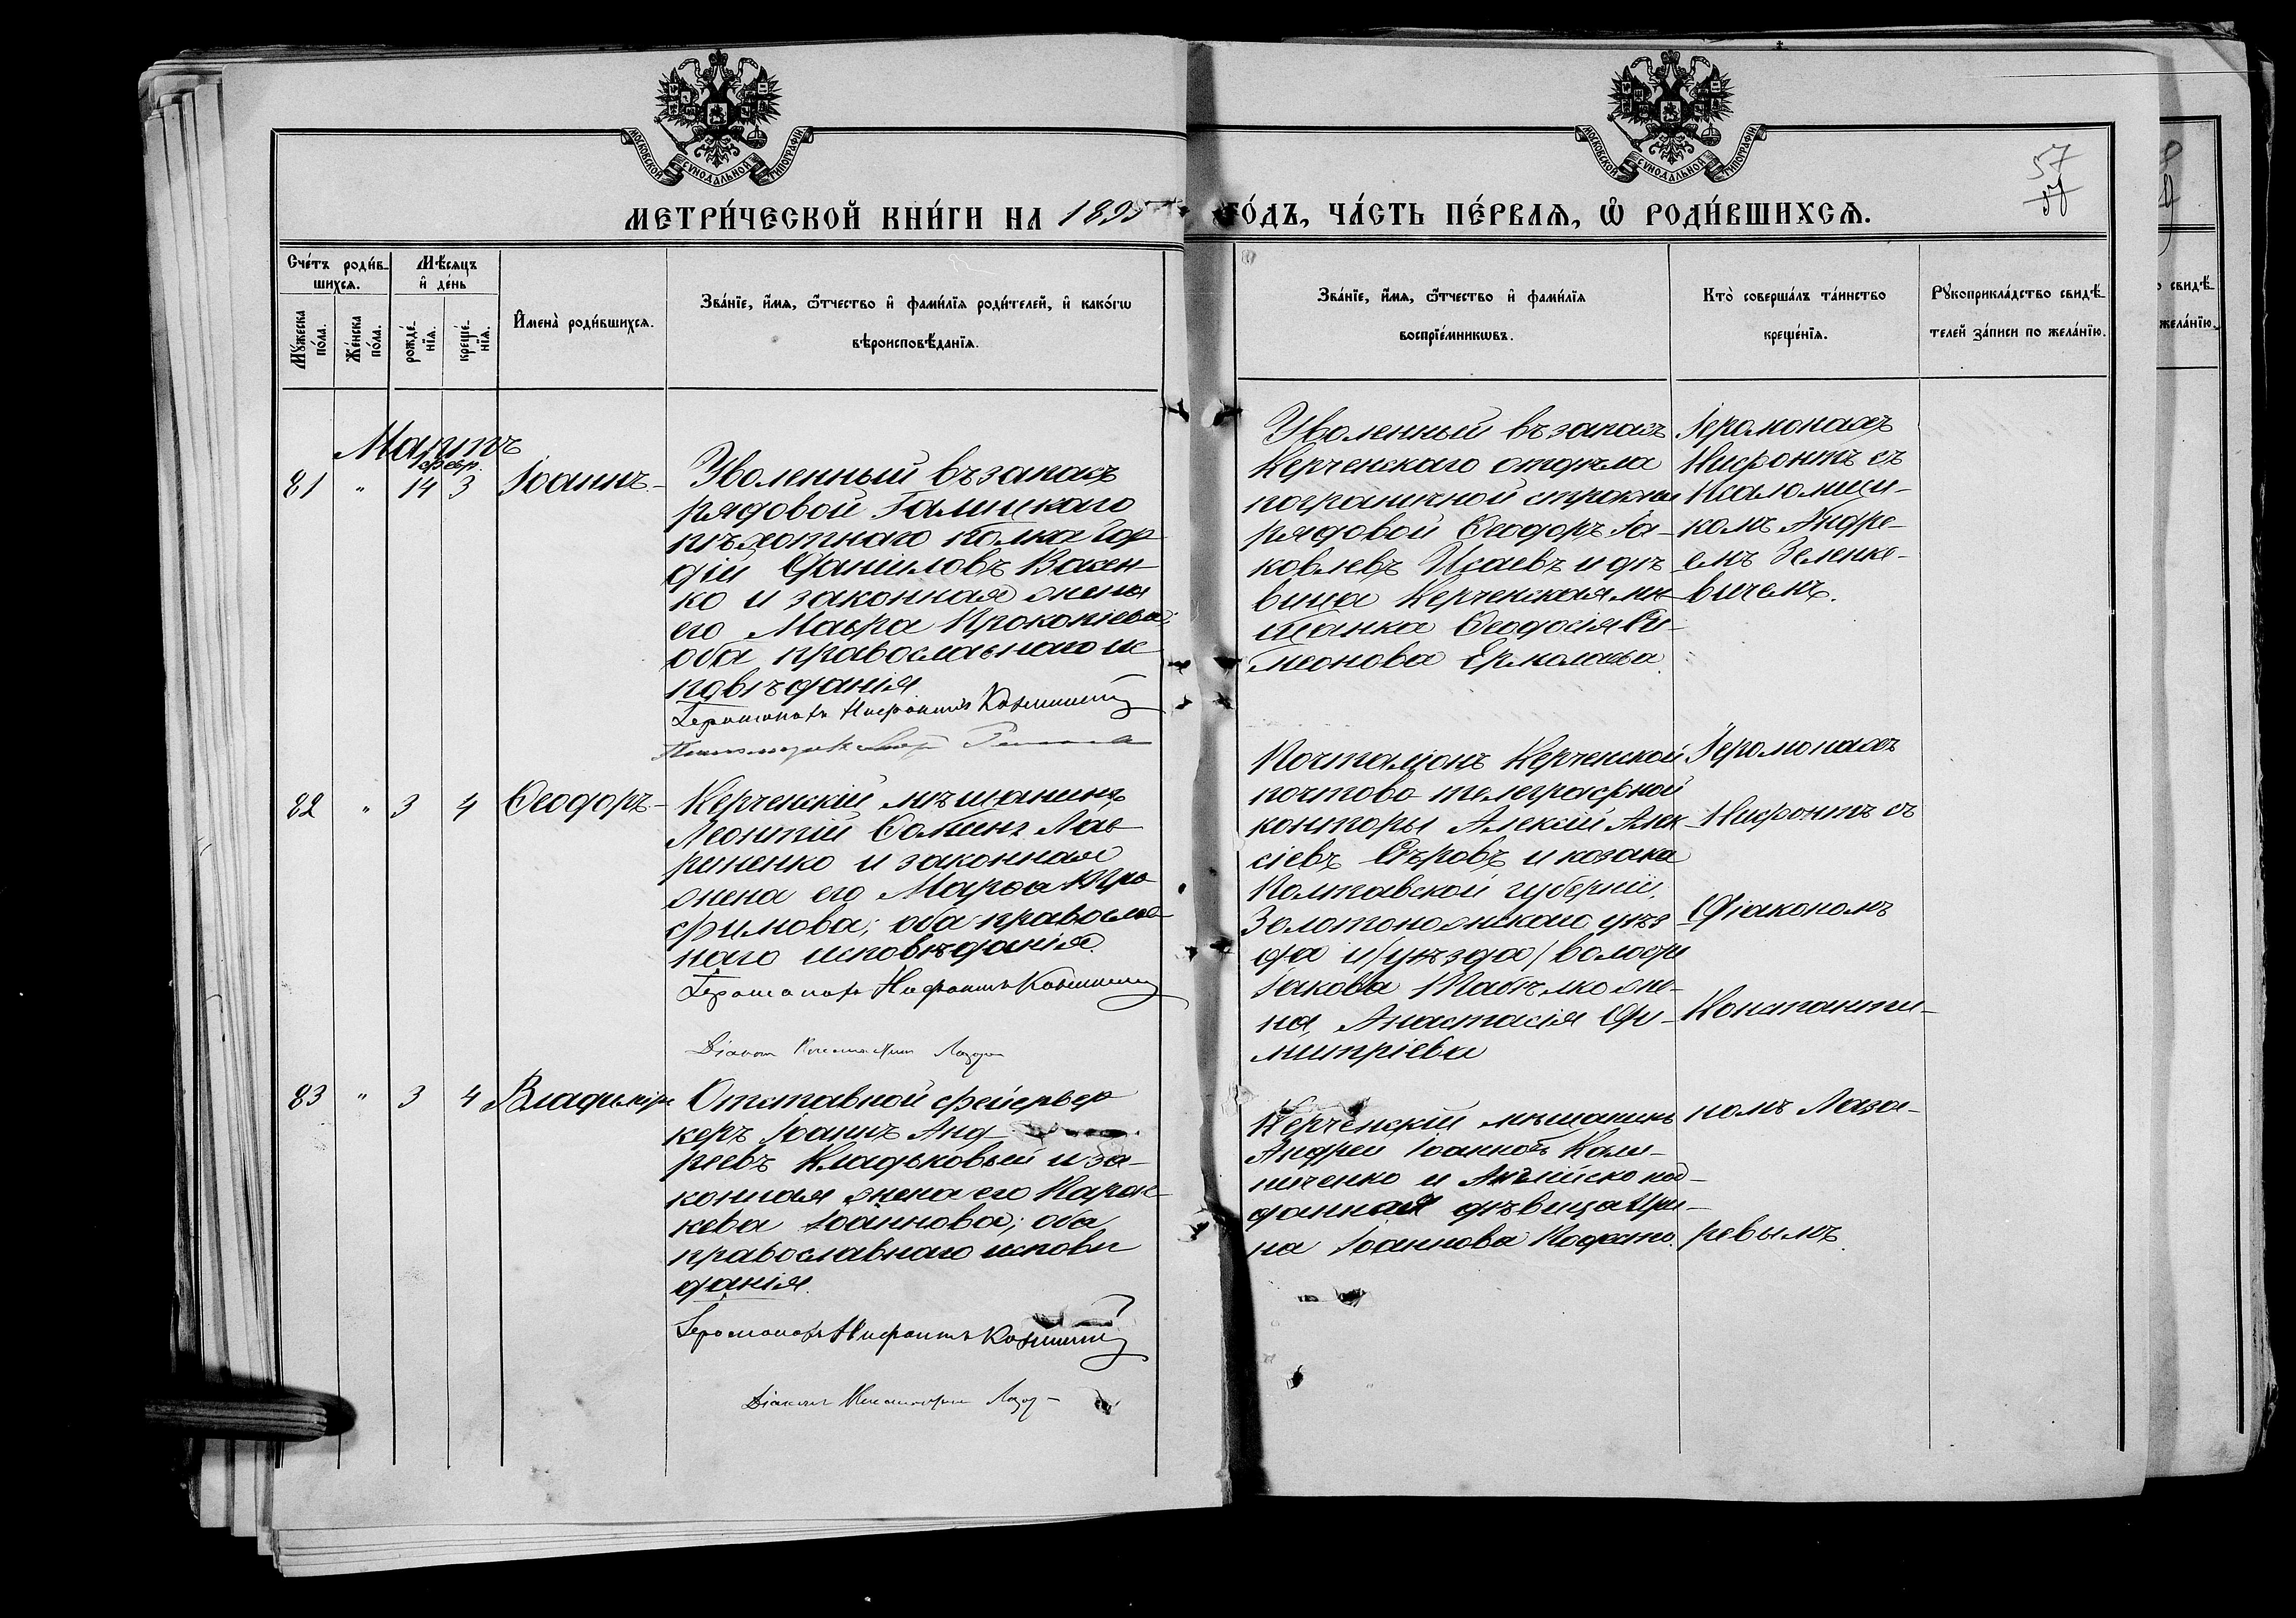 МОСКОВСКОЙ СѴНОДАЛЬНОЙ ТИПОГРАФІИ
МОСКОВСКОЙ СѴНОДАЛЬНОЙ ТИПОГРАФІИ
57
57
МЕТРИ́ЧЕСКОЙ КНИ́ГИ НА 1895
ГО́ДЪ, ЧА́СТЬ ПЕ́РВАѦ, Ѽ РОДИ́ВШИХСѦ.
Сче́тъ роди́в-
шихсѧ.
Мꙋ́жеска по́ла.
Же́нска по́ла.
Мѣ́сѧцъ
и҆ де́нь
рожде́-
нїѧ.
креще́-
нїѧ.
И҆мена̀ роди́вшихсѧ.
Зва́нїе, и҆́мѧ, ѻ҆́тчество и҆ фами́лїѧ роди́телей, и҆ како́гѡ
вѣроисповѣ́данїѧ.
Зва́нїе, и҆́мѧ, ѻ҆́тчество и҆ фами́лїѧ
воспрїе́мникѡвъ.
Кто̀ соверша́лъ та́инство
креще́нїѧ.
Рꙋкоприкла́дство свидѣ́-
телей за́писи по жела́нїю.
Мартъ
февр.
81 " 14 3 Іоаннъ
Уволенный въ запасъ
рядовой Галицкаго
пѣхотнаго полка Гор
дій Даніиловъ Васен-
ко и законная жена
его Мавра Прокопіева;
оба православнаго ис
повѣданія.
Іеромонахъ Нифонтъ
Уволенный въ запасъ
Керченскаго отдѣла
пограничной стражи
рядовой Ѳеодоръ Іа-
ковлевъ Исаевъ и дѣ
вица Керченская мѣ
щанка Ѳеодосія Си-
меонова Ермолаева.
Іеромонахъ
Нифонтъ съ
Псаломщи-
комъ Андре-
емъ Зеленке-
вичемъ.
82 " 3 4 Ѳеодоръ
Керченскій мѣщанинъ
Леонтій Саввинъ Лав
риненко и законная
жена его Марѳа Тро
фимова; оба православ
наго исповѣданія.
Іеромонахъ Нифонтъ
Діаконъ Константинъ
Почталіонъ Керченской
почтово телеграфной
конторы Алексій Алек
сіевъ Сѣровъ и козака
Полтавской губерніи,
Золотоношскаго уѣз
да и /уѣзда/ волости
Іакова жe-
на, Анастасія Ди-
митріева
Іеромонахъ
Нифонтъ съ
Діакономъ
Константи-
83 " 3 4 Владиміръ
Отставной фейервер
керъ Іоаннъ Анд
реевъ Кладьковый и за-
конная жена его Парас
кева Іоаннова; оба
православнаго исповѣ
данія.
Іеромонахъ Нифонтъ
Діаконъ
Керченскій мѣщанинъ
Андрей Іоанновъ Кали-
ниченко и Англійско под-
данная дѣвица Ири-
на Іоаннова
номъ Лаза-
ревымъ.